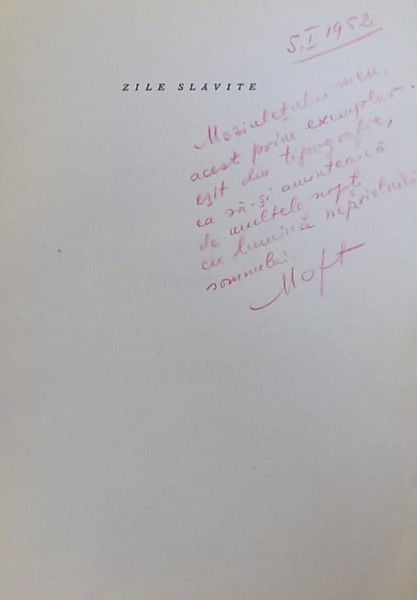 5.I 1952
ZILE SLĂVITE
Moziulețului meu,
acest prim exemplar
eșit din tipografie,
ca să-și amintească
de multele nopți
cu lumină neprielnică
somnului.
Moft